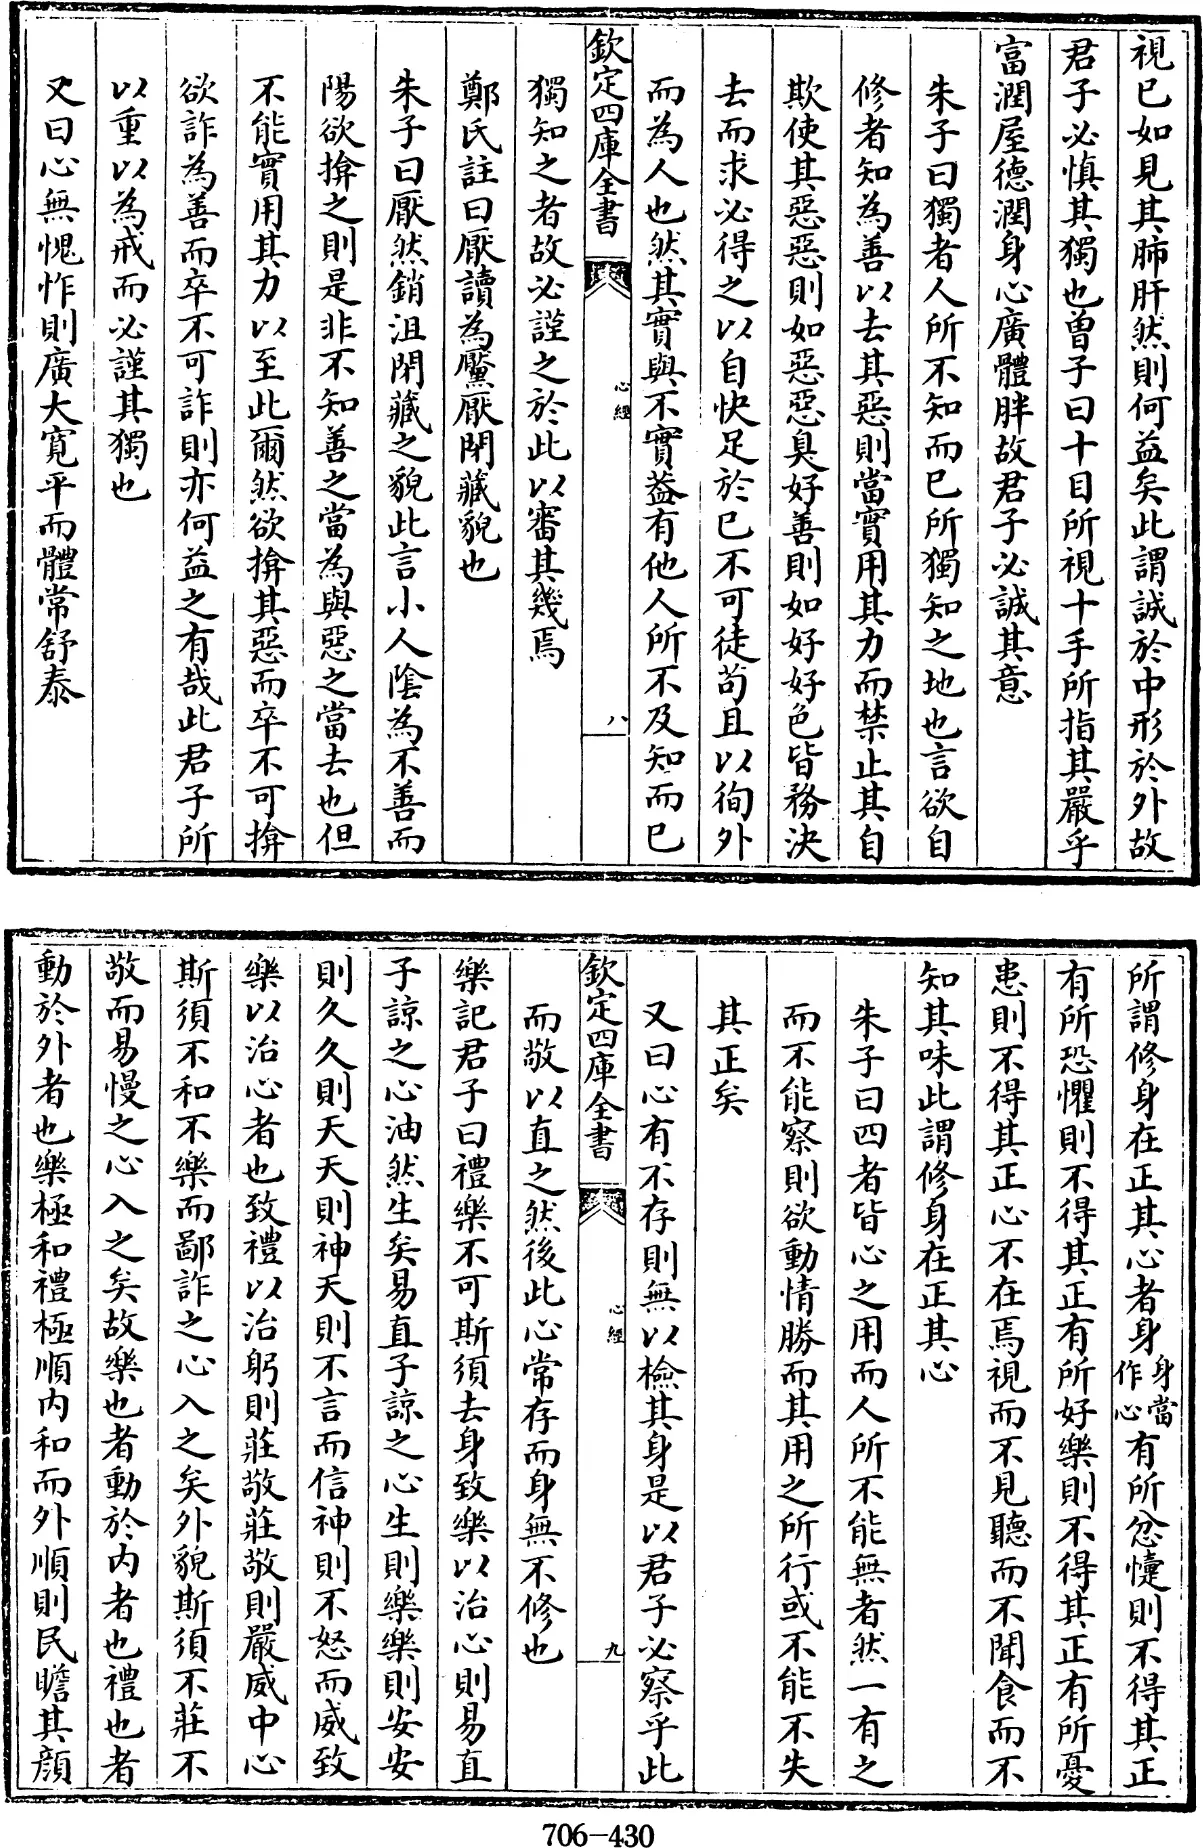 視已如見其肺肝然則何益矣此謂誠於中形於外故
君子必慎其獨也曽子曰十目所視十手所指其嚴乎
富潤屋德潤身心廣體胖故君子必誠其意
朱子曰獨者人所不知而已所獨知之地也言欲自
修者知為善以去其惡則當實用其力而禁止其自
欺使其惡惡則如惡惡臭好善則如好好色皆務決
去而求必得之以自快足於已不可徒苟且以徇外
而為人也然其實與不實葢有他人所不及知而已
欽定四庫全書
心經
八
獨知之者故必謹之於此以審其幾焉
鄭氏註曰厭讀為黶厭閉藏貌也
朱子曰厭然銷沮閉藏之貌此言小人陰為不善而
陽欲揜之則是非不知善之當為與惡之當去也但
不能實用其力以至此爾然欲揜其惡而卒不可揜
欲詐為善而卒不可詐則亦何益之有哉此君子所
以重以為戒而必謹其獨也
又曰心無愧怍則廣大寛平而體常舒泰
所謂修身在正其心者身身當作心有所忿懥則不得其正
有所恐懼則不得其正有所好樂則不得其正有所憂
患則不得其正心不在焉視而不見聽而不聞食而不
知其味此謂修身在正其心
朱子曰四者皆心之用而人所不能無者然一有之
而不能察則欲動情勝而其用之所行或不能不失
其正矣
又曰心有不存則無以檢其身是以君子必察乎此
欽定四庫全書
心經
九
而敬以直之然後此心常存而身無不修也
樂記君子曰禮樂不可斯須去身致樂以治心則易直
子諒之心油然生矣易直子諒之心生則樂樂則安安
則久久則天天則神天則不言而信神則不怒而威致
樂以治心者也致禮以治躬則莊敬莊敬則嚴威中心
斯須不和不樂而鄙詐之心入之矣外貌斯須不莊不
敬而易慢之心入之矣故樂也者動於内者也禮也者
動於外者也樂極和禮極順内和而外順則民瞻其顔
706-430